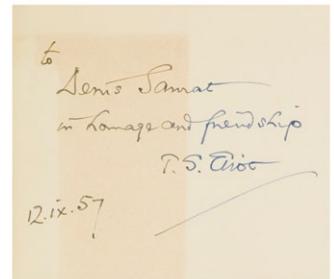 to
Denis Saurat
in homage and friendship
T. S. Eliot
12.ix.57